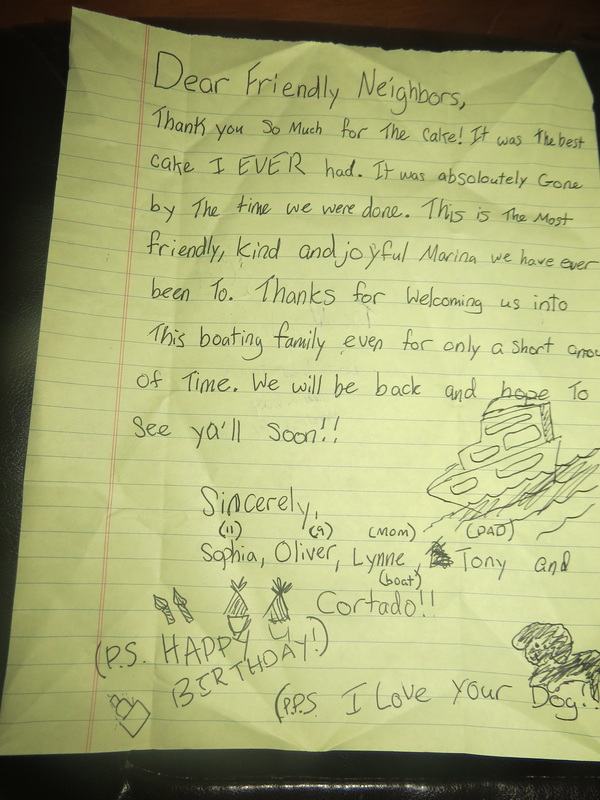 Dear Friendly Neighbors,
Thank you so Much for The cake! It was the best
cake I EVER had. It was absoloutely Gone
by The time we were done. This is The Most
friendly, kind and joyful Marina we have ever
been To. Thanks for Welcoming us into
This boating family even for only a short amou
of Time. We will be back and hope To
See ya'll Soon!!
Sincerely,
(11) (9) (Mom) (DAD)
Sophia, Oliver, Lynne, Tony and
(boat)
Cortado!!
(P.S. HAPPY
BIRTHDAY!)
(P.P.S I Love Your Dog!!